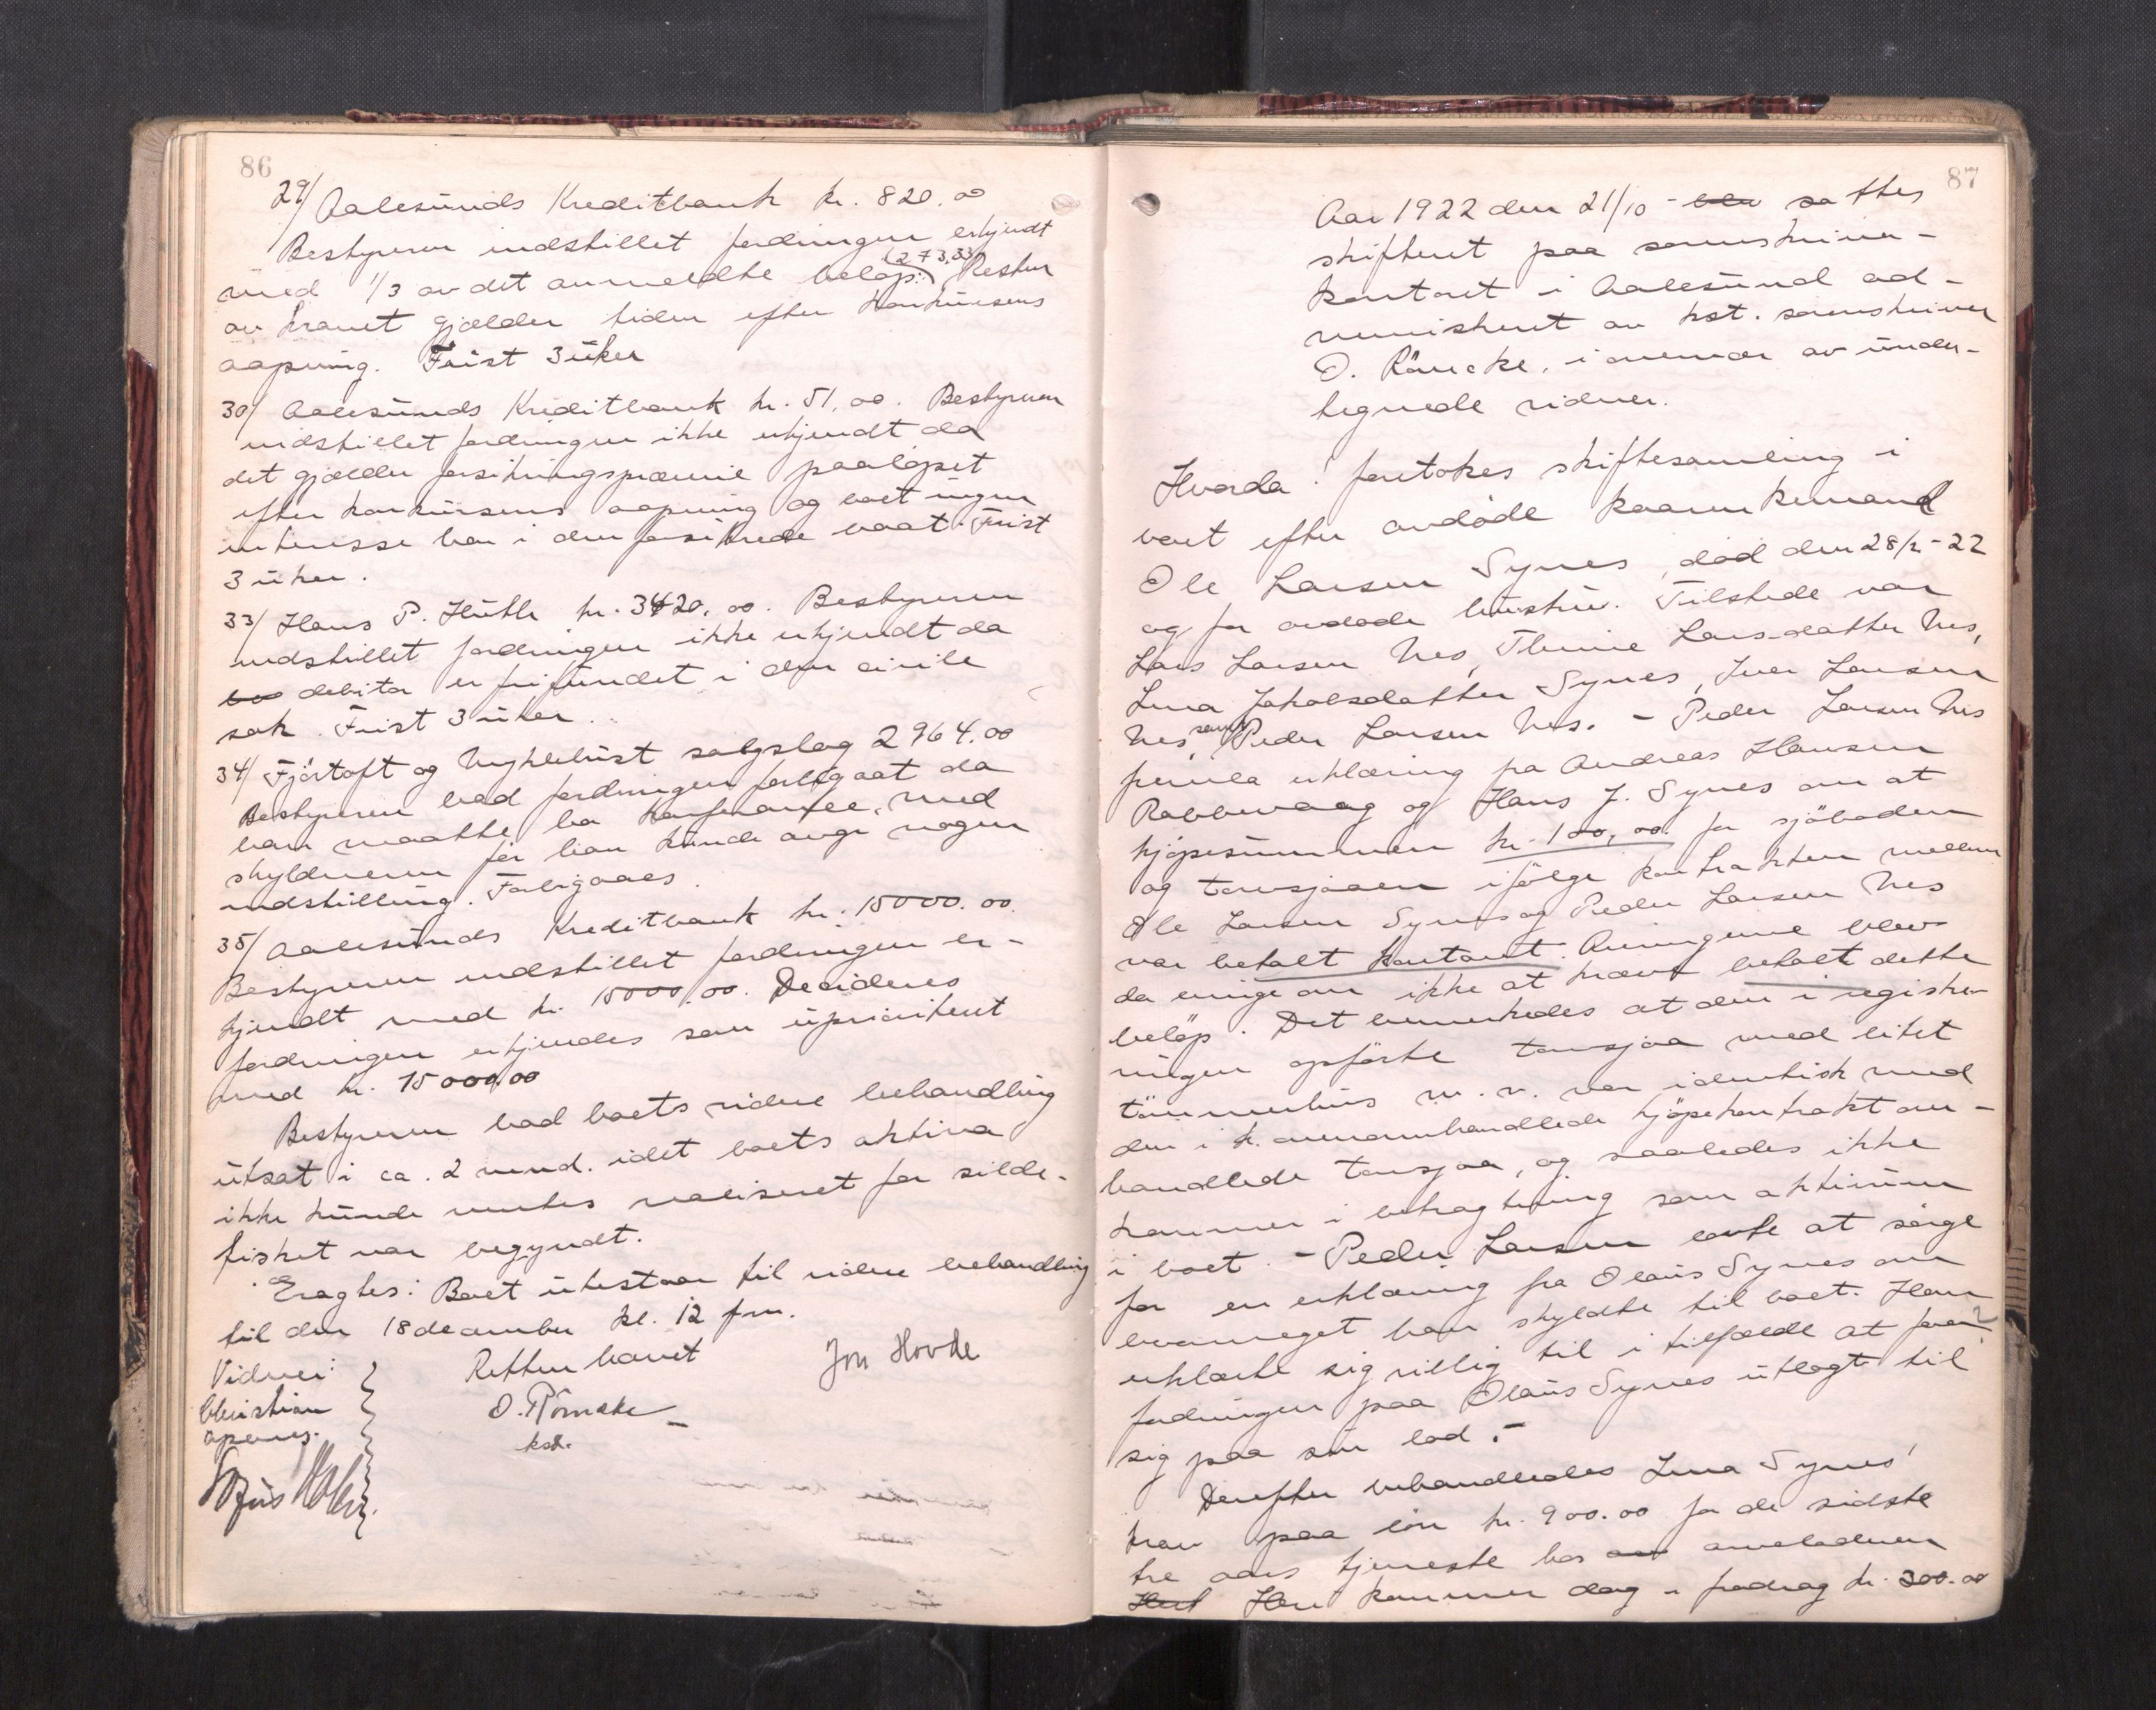 86
29/ Aalesunds Kreditbank kr. 820.00
Bestyreren indstillet fordringen erkjendt
med 1/3 av det anmeldte beløp: (273,33) Resten
av kravet gjælder tiden efter konkursens
aapning. Frist 3 uker
30/ Aalesunds Kreditbank kr. 51,00. Bestyreren
indstillet fordringen ikke erkjendt da
det gjælder forsikringspræmie paaløpet
efter konkursens aapning og boet ingen
interesse har i den forsikrede baat. Frist
3 uker.
33/ Hans P. Huth kr. 3420,00. Bestyreren
indstillet fordringen ikke erkjendt da
debitor er frifundet i den civile
sak. Frist 3 uker.
34/ Fjörtoft og Myklebust salgslag 2964.00
Bestyreren bad fordringen forbigaat da
han maatte ha konferanse med
skyldneren før han kunde avgi nogen
indstilling. Forbigaaes.
35/ Aalesunds Kreditbank kr. 15000.00.
Bestyreren indstillet fordringen er-
kjendt med kr. 15000.00. Decideres
fordringen erkjendes som uprioritert
med kr. 15000,00
Bestyreren bad boets videre behandling
utsat i ca. 2 mnd. idet boets aktiva
ikke kunde ventes realisert før silde-
fisket var begyndt.
Eragtes: Boet utestaar til videre behandling
til den 18 december kl. 12 fm.
Vidner: Retten hævet Jon Hovde
Christian O. Röncke
kst.
87
Aar 1922 den 21/10 - blev sattes
skifteret paa sorenskriver-
kontoret i Aalesund ad-
ministreret av kst. sorenskriver
O. Röncke, i nærvær av under-
tegnede vidner.
Hvorda: foretokes skiftesamling i
boet efter avdöde kaarenkemand
Ole Larsen Synes, död den 28/2-22
og før avdöde hustru. Tilstede var
Lars Larsen Nes, Thinie Larsdatter Nes,
Lina Jakobsdatter Synes, Iver Larsen
Nes, samt Peder Larsen Nes. - Peder Larsen Nes
fremla erklæring fra Andreas Hansen
Rabbevaag og Hans J. Synes om at
kjøpesummen kr. 100,00 for sjöboden
og torvsjaaen ifølge kontrakten mellem
Ole Larsen Synes og Peder Larsen Nes
var betalt kontant. Arvingerne blev
da enige om ikke at kræve betalt dette
beløp. Det bemerkedes at den i registe-
ringen opförte torvsjaa med litet
tömmerhus m.v. var identisk med
den i kjøpekontrakt om-
handlede torvsjaa, og saaledes ikke
kommer i betragtning som aktivum
i boet. - Peder Larsen lovte at sörge
for en erklæring fra Olaus Synes om
hvormeget han skyldte til boet. Han
erklærte sig villig til i tilfælde at faa
fordringen paa Olaus Synes utlagt til
sig paa sin lod. -
Derefter behandledes Lina Synes'
krav paa lön kr. 900.00 for de sidste
tre aars tjeneste hos avdødede
Heri kommer dog i fradrag kr. 300.00